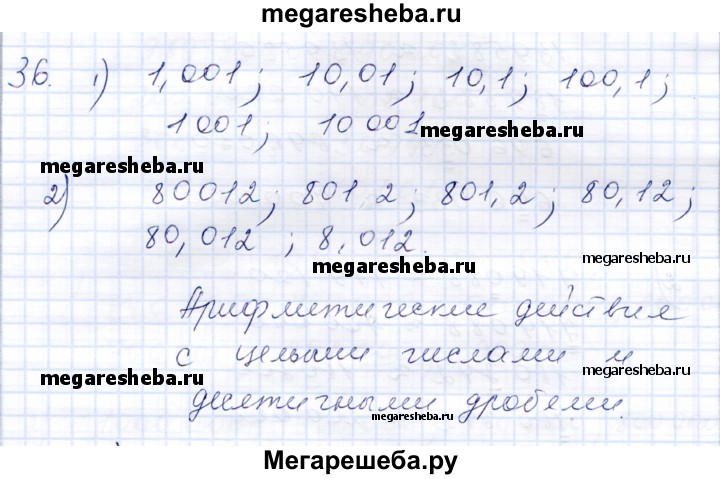 megaresheba.ru
36. 1) 1,001; 10,01; 10,1; 100,1;
1001; 10001
megaresheba.ru
megaresheba.ru
2) 80012; 801 2; 801,2; 80,12;
80,012 ; 8,012.
megaresheba.ru
megaresheba.ru
Арифметические действия
с целыми числами и
megaresheba.ru
megaresheba.ru
десятичными дробями.
megaresheba.ru
Мегарешеба.ру